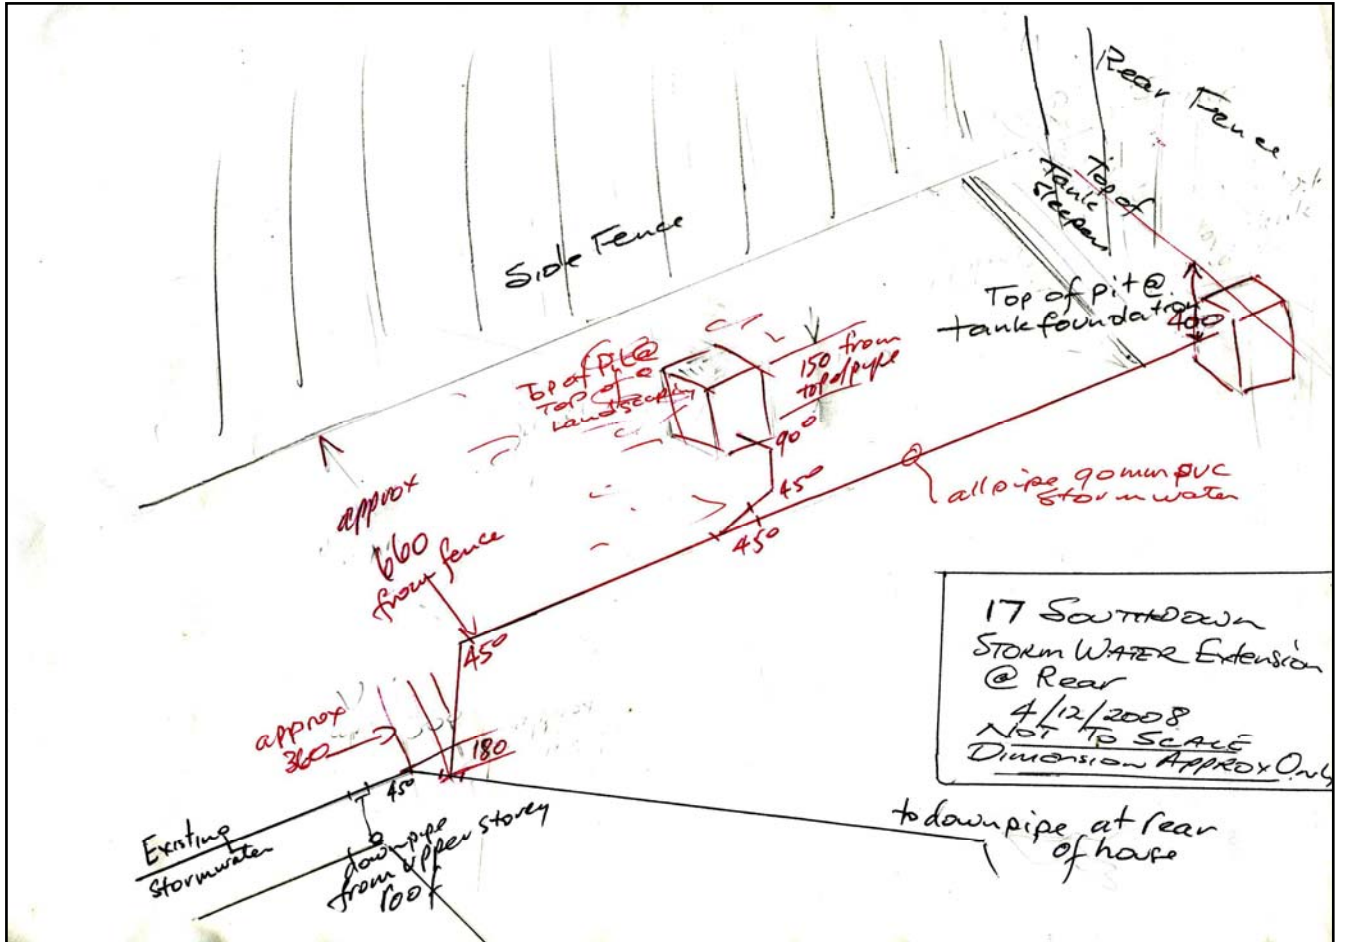 Rear Fence
Top of
tank
sleepers
Side Fence
Top of pit @
tank foundation
400
Top of Pit @
Top of
Landscaping
150 from
top of pipe
90°
45°
45°
all pipe 90mm PVC
stormwater
approx
660
from fence
45°
approx
360
180
45°
Existing
stormwater
downpipe
from upper storey
roof
to downpipe at rear
of house
17 SOUTHDOWN
STORM WATER Extension
@ Rear
4/12/2008
NOT TO SCALE
Dimension APPROX Only